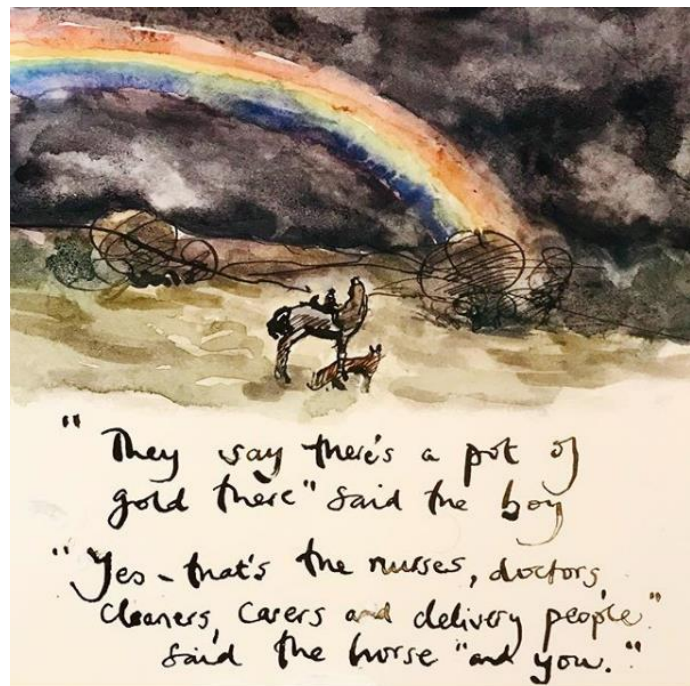 "They say there's a pot of
gold there" said the boy
"Yes - that's the nurses, doctors,
cleaners, carers and delivery people"
said the horse "and you."